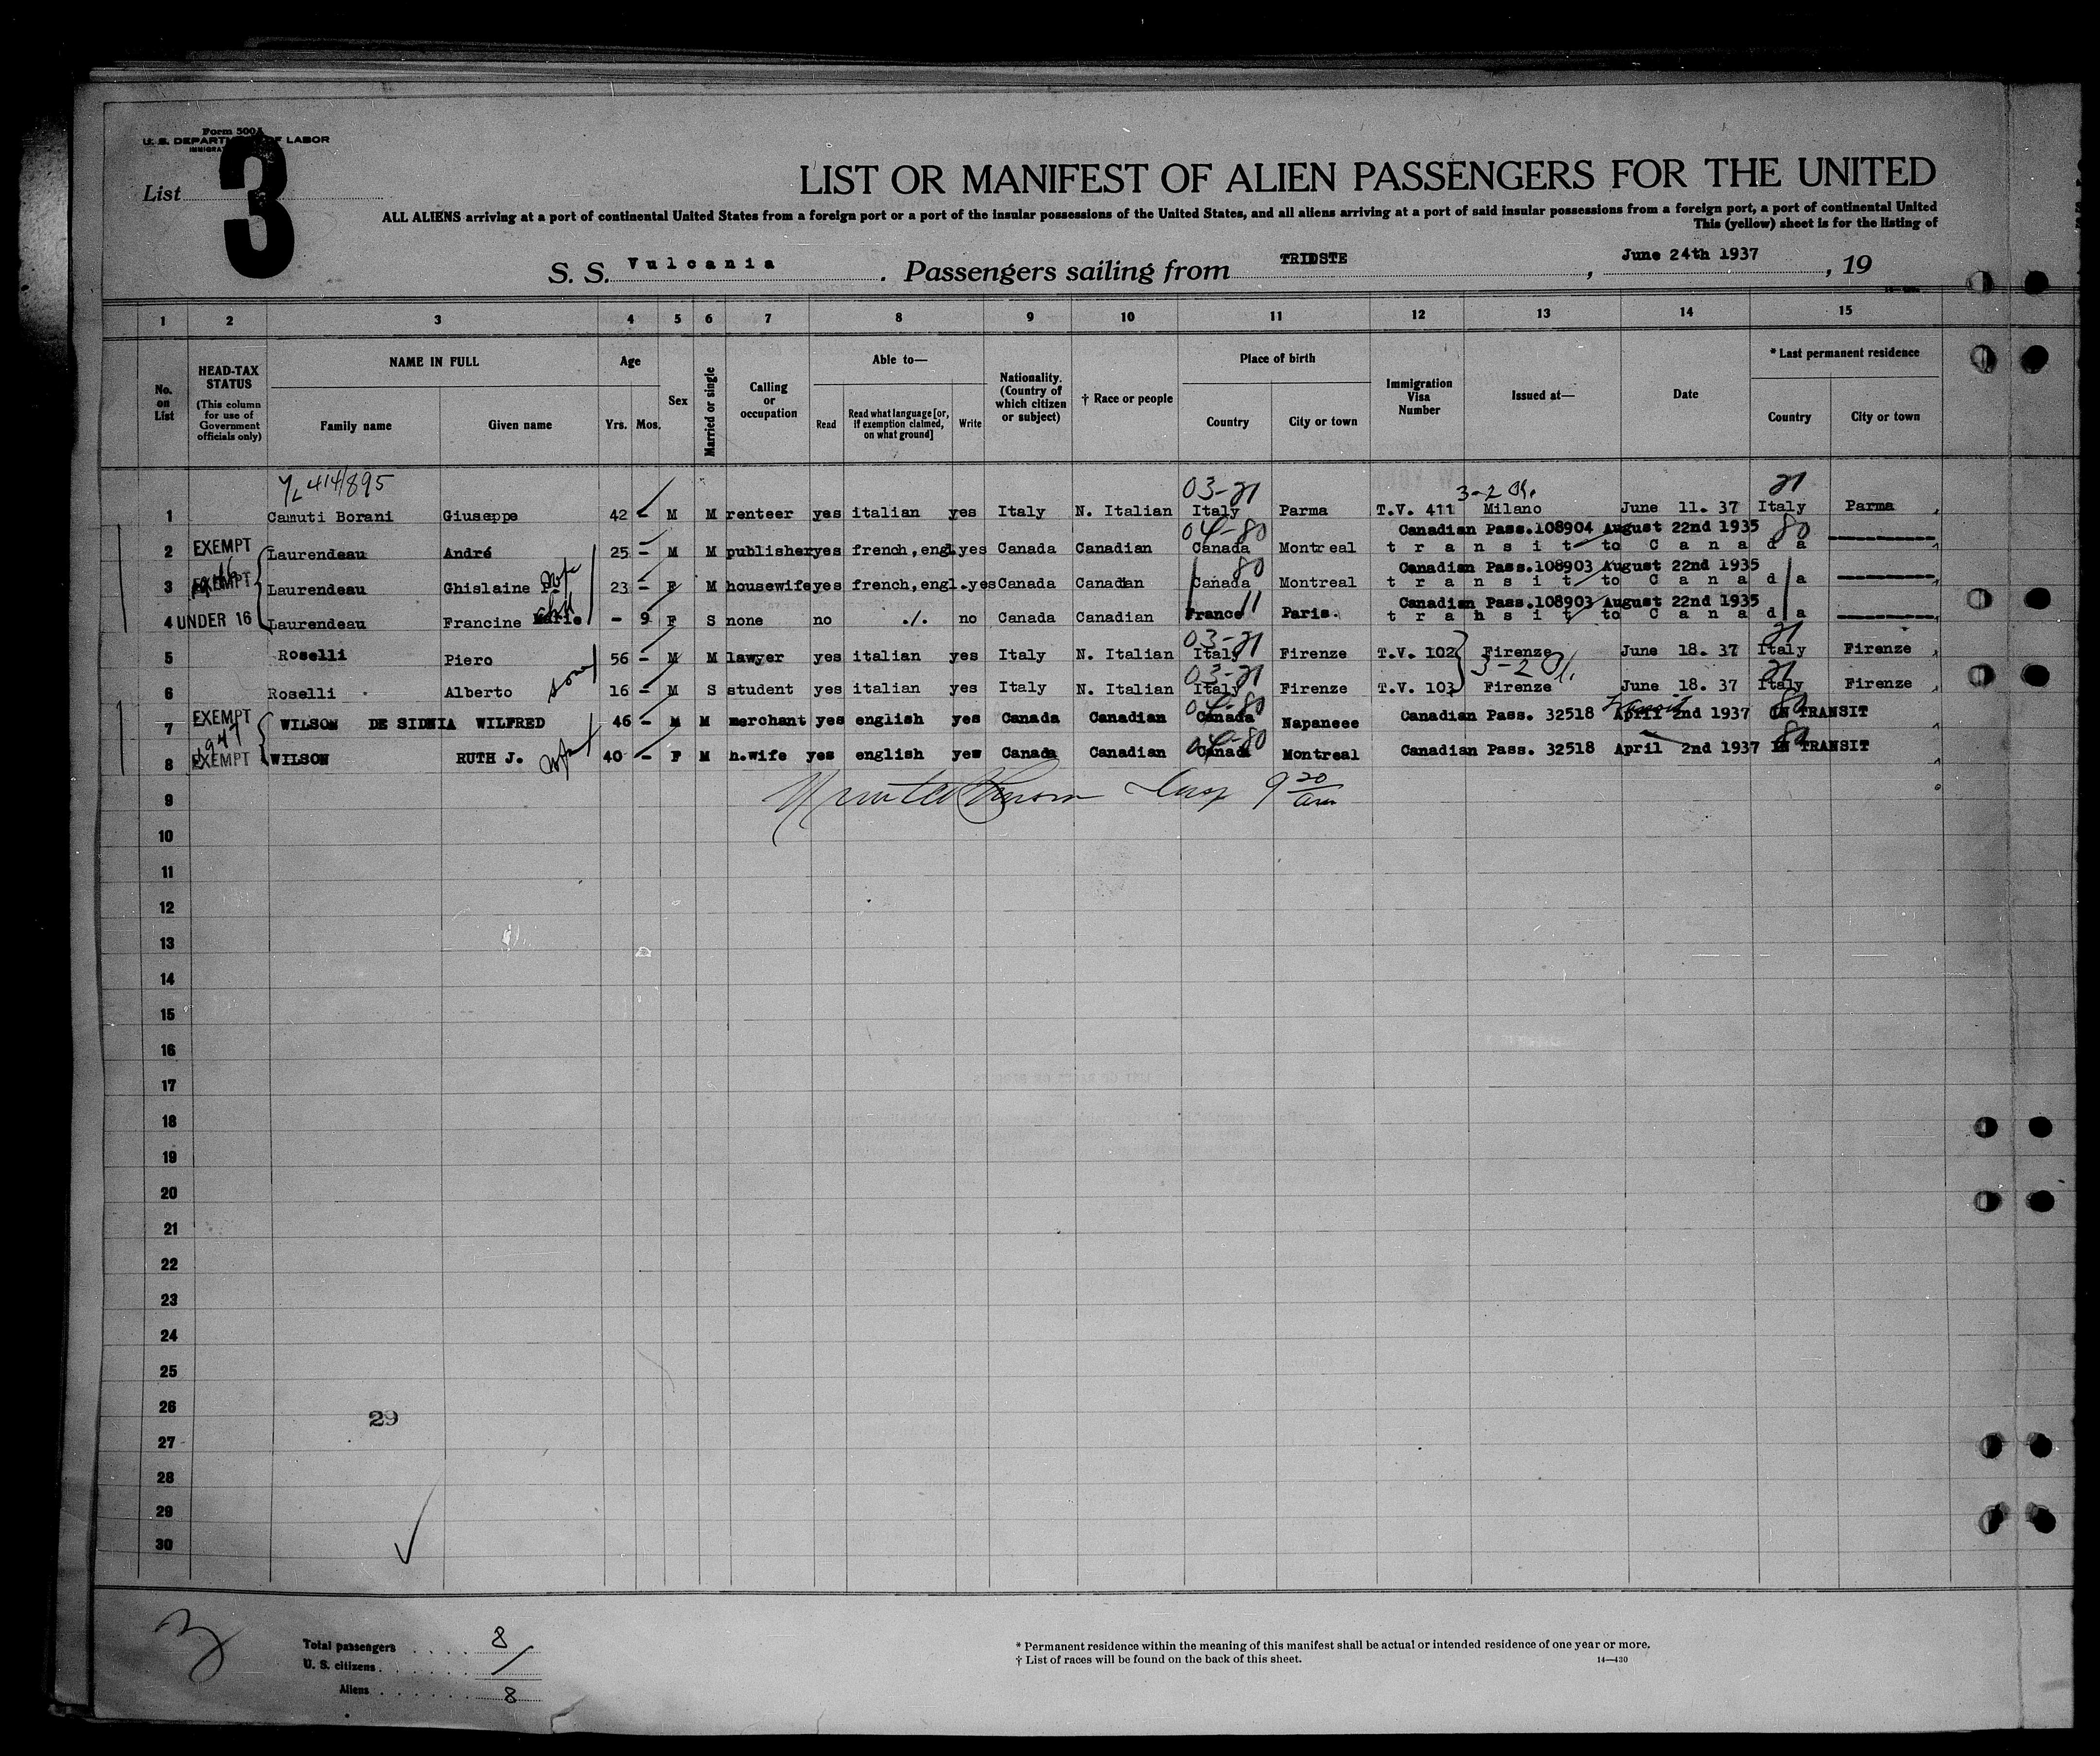 Form 500A
U. S. DEPARTMENT OF LABOR
List
3
LIST OR MANIFEST OF ALIEN PASSENGERS FOR THE UNITED
ALL ALIENS arriving at a port of continental United States from a foreign port or a port of the insular possessions of the United States, and all aliens arriving at a port of said insular possessions from a foreign port, a port of continental United
This (yellow) sheet is for the listing of
S. S. Vulcania . Passengers sailing from TRIESTE , June 24th 1937 , 19
1 2 3 4 5 6 7 8 9 10 11 12 13 14 15
No. on List
HEAD-TAX STATUS (This column for use of Government officials only)
NAME IN FULL
Family name Given name
Age
Yrs. Mos.
Sex
Married or single
Calling or occupation
Able to—
Read Read what language [or, if exemption claimed, on what ground] Write
Nationality. (Country of which citizen or subject)
† Race or people
Place of birth
Country City or town
Immigration Visa Number
Issued at—
Date
* Last permanent residence
Country City or town
414/895 03-21 3-2 21
1 Camuti Borani Giuseppe 42 - M M renteer yes italian yes Italy N. Italian Italy Parma T.V. 411 Milano June 11. 37 Italy Parma
04-80 Canadian Pass.108904 August 22nd 1935 80
2 EXEMPT Laurendeau André 25 - M M publisher yes french,engl yes Canada Canadian Canada Montreal transit to Canada
80 Canadian Pass.108903 August 22nd 1935
3 EXEMPT Laurendeau Ghislaine wife 23 - F M housewife yes french,engl.yes Canada Canadian Canada Montreal transit to Canada
11 Canadian Pass.108903 August 22nd 1935
4 UNDER 16 Laurendeau Francine Marie - 9 F S none no ./. no Canada Canadian France Paris. transit to Canada
03-21 21
5 Roselli Piero 56 - M M lawyer yes italian yes Italy N. Italian Italy Firenze T.V. 102 Firenze June 18. 37 Italy Firenze
03-21 3-2 21
6 Roselli Alberto son 16 - M S student yes italian yes Italy N. Italian Italy Firenze T.V. 103 Firenze June 18. 37 Italy Firenze
04-80 Transit 80
7 EXEMPT WILSON DE SIDNIA WILFRED 46 - M M merchant yes english yes Canada Canadian Canada Napaneee Canadian Pass. 32518 April 2nd 1937 IN TRANSIT
1947 04-80 80
8 EXEMPT WILSON RUTH J. wife 40 - F M h.wife yes english yes Canada Canadian Canada Montreal Canadian Pass. 32518 April 2nd 1937 IN TRANSIT
9 Insp 9 20 am
10
11
12
13
14
15
16
17
18
19
20
21
22
23
24
25
26
29
27
28
29
30
3
Total passengers 8
U. S. citizens /
Aliens 8
* Permanent residence within the meaning of this manifest shall be actual or intended residence of one year or more.
† List of races will be found on the back of this sheet.
14—430